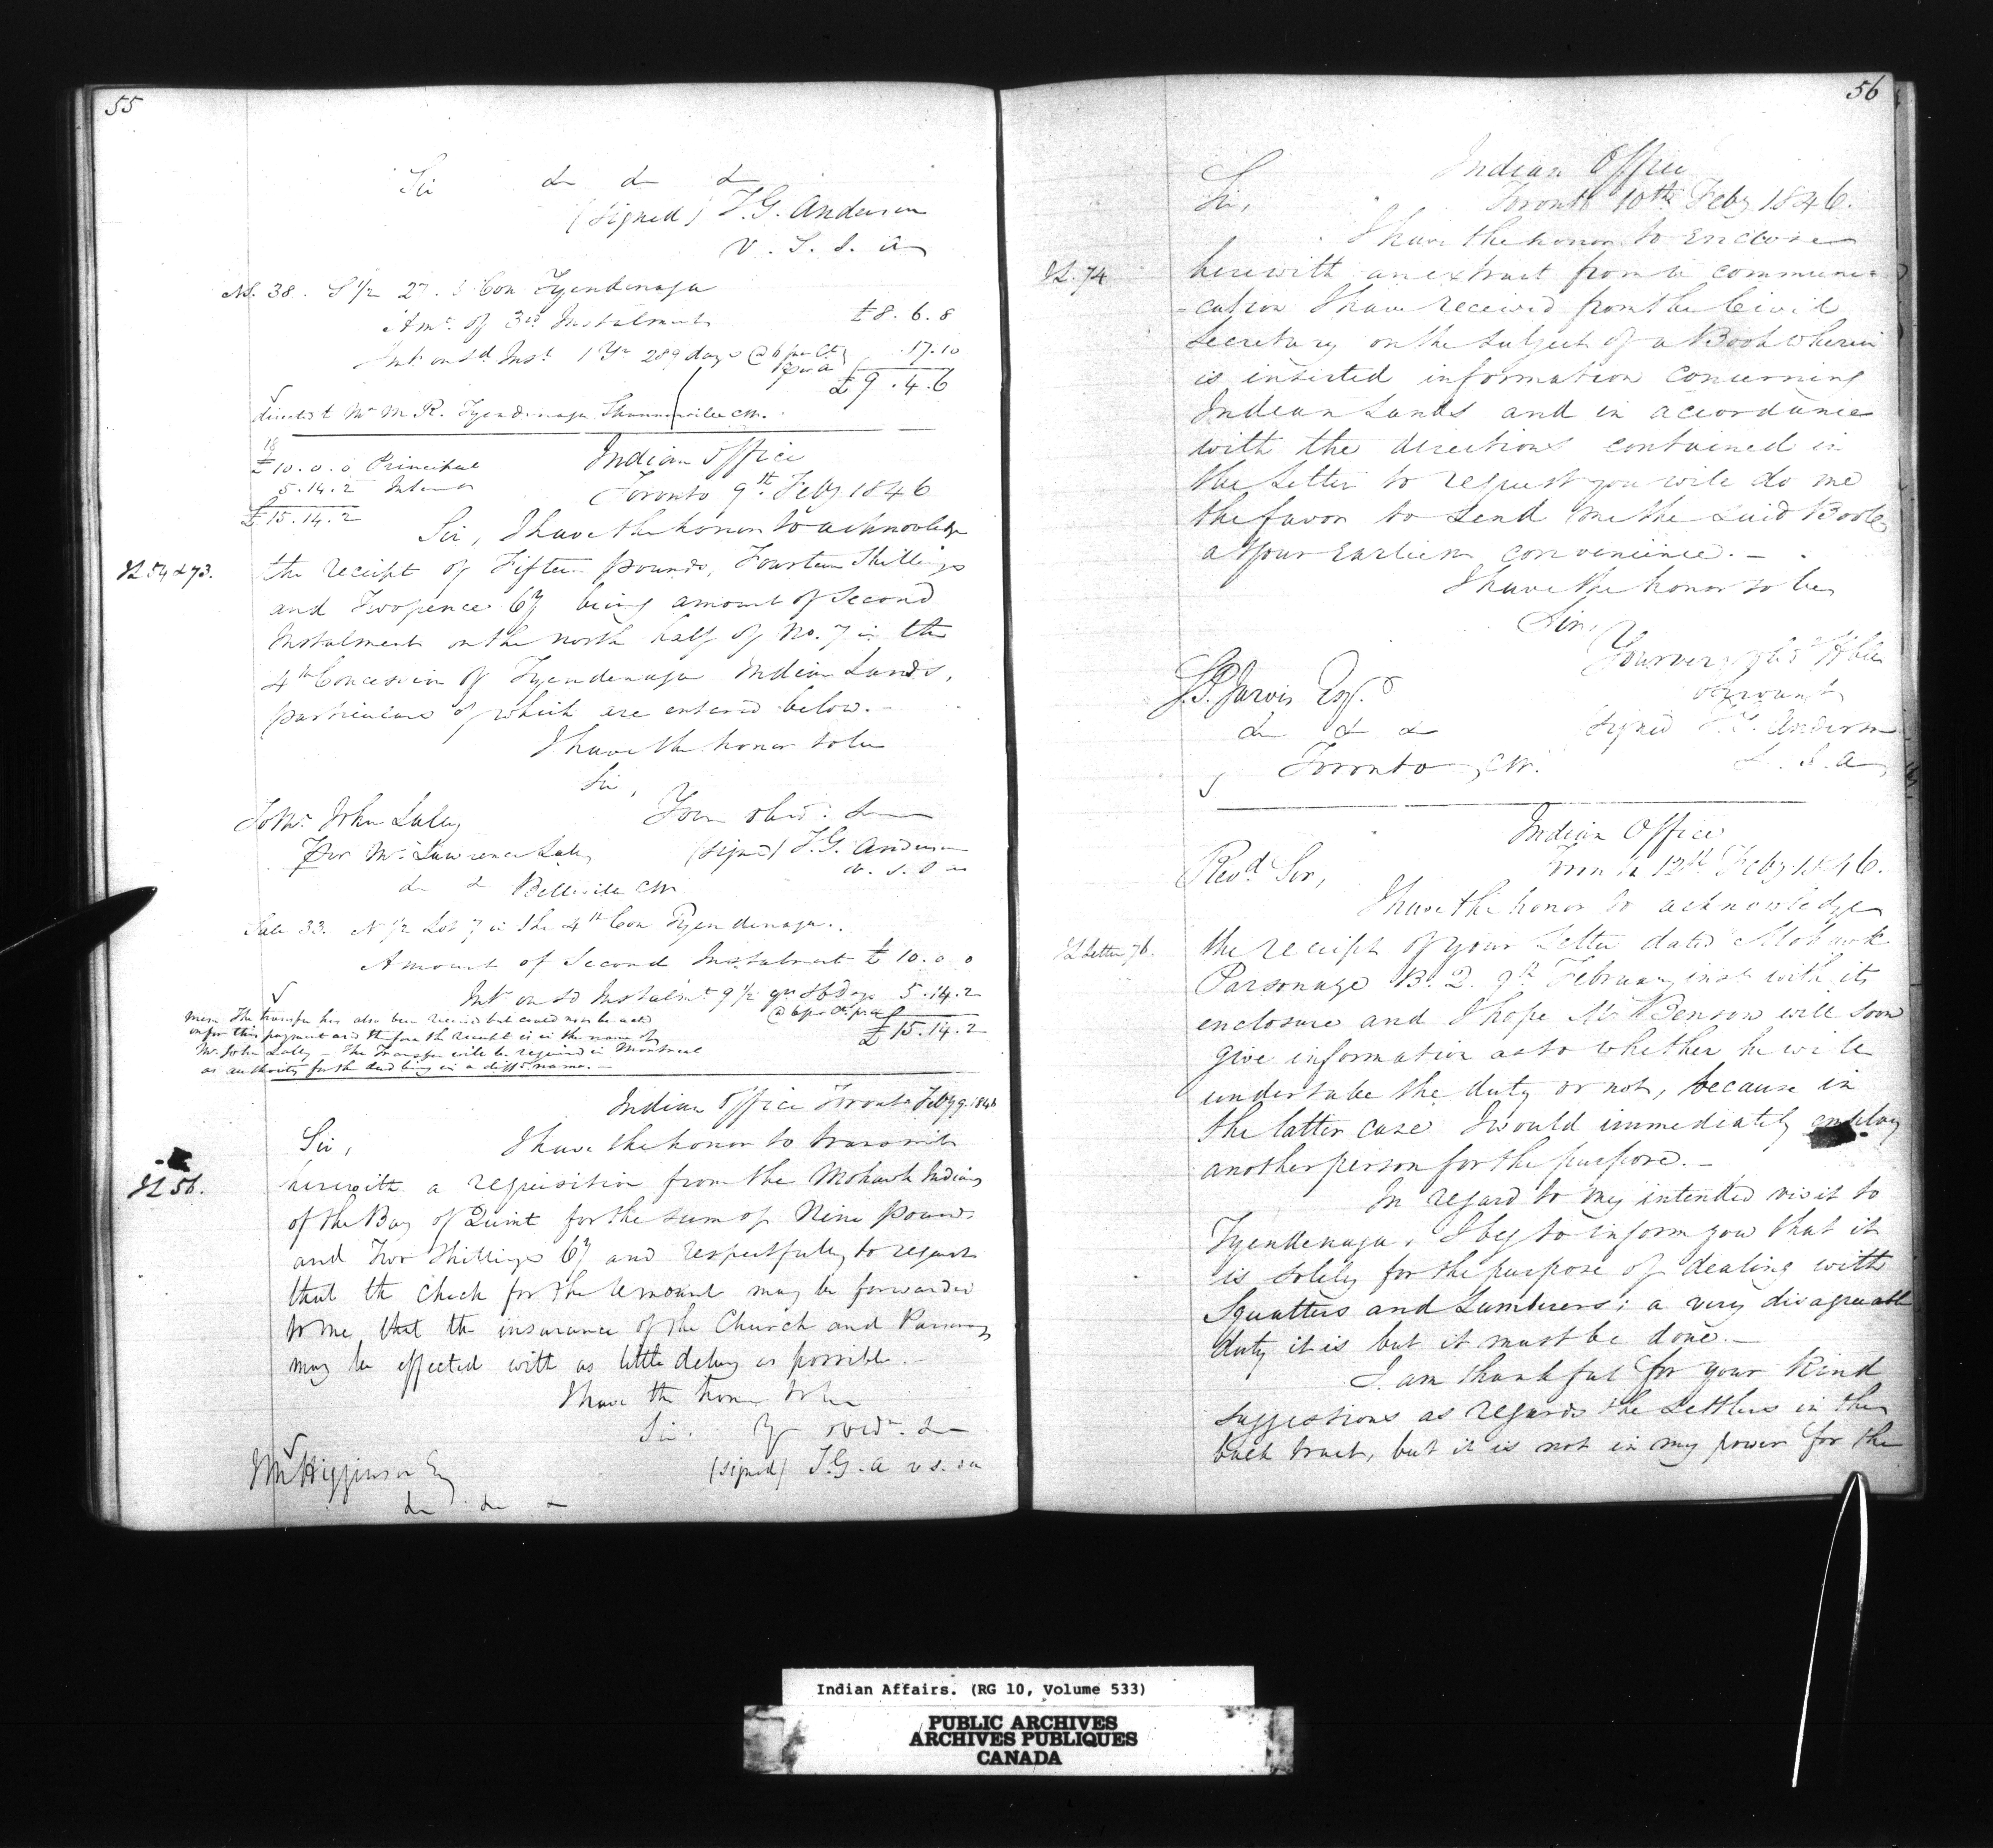 55
Sir &c &c &c
(signed) T.G. Anderson
V. S. I. A
No. 38. S 1/2 27. Con Tyendenaga
Amt. of 3rd Instalment £8. 6. 8
Int on sd. Inst. 1 Yr 289 days @ 6 per Ct .17.10
£9. 4. 6
directed to Mr M. R. Tyendenaga Shannonville CW.
£10. 0. 0 Principal
5. 14. 2 Interest
£15. 14. 2
Indian Office
Toronto 9th. Feby 1846
Sir, I have the honor to acknowledge
54 & 73.
the receipt of Fifteen pounds, Fourteen Shillings
and Twopence Cy being amount of Second
Instalment on the north half of No. 7 in the
4th Concession of Tyendenaga Indian Lands,
particulars of which are entered below. -
I have the honor to be
Sir,
To Mr. John Lally
Your obedt. &c
For Mr. Lawrence Lally
(signed) T.G. Anderson
& & Belleville CW
Sale 33. N 1/2 Lot 7 in the 4th Con Tyendenaga.
Amount of Second Instalment £10. 0. 0
Int on sd Instalmt. 9 1/2 yrs 86 Days 5. 14. 2
@ 6 per Ct. pr a
£15. 14. 2
Mem The transfer has also been received but could not be acted
on for this payment and therefore the receipt is in the name of
Mr. John Lally - The Transfer will be required in Montreal
as authority for the deed being in a difft. name. -
Indian Office Toronto Feby 9. 1846
Sir, I have the honor to transmit
56.
herewith a requisition from the Mohawk Indians
of the Bay of Quint for the sum of Nine pounds
and Two Shillings Cy and respectfully to request
that the Check for the Amount may be forwarded
to me, that the insurance of the Church and Parsonage
may be effected with as little delay as possible. -
I have the honor to be
Sir. Yr obedt. &c
(signed) T.G. A
Higginson Esq
&c &c &c
56
Indian Office
Toronto 10th Feby 1846.
Sir,
I have the honor to enclose
74
herewith an extract from a communi-
-cation I have received from the Civil
Secretary on the subject of a Book wherein
is inserted information concerning
Indian Lands and in accordance
with the directions contained in
the Letter to request you will do me
the favor to send me the said Book
at your earliest convenience. -
I have the honor to be
Sir,
Your very obdt Hble
Servant
S.P. Jarvis Esqr.
signed T.G. Anderson
&c &c &c
Toronto, CW.
S. I. A
Indian Office
Toronto 12th Feby 1846.
Revd. Sir,
I have the honor to acknowledge
Letter 76.
the receipt of your Letter dated Mohawk
Parsonage B. Q. 9th February inst with its
enclosure and I hope Mr Benson will soon
give information as to whether he will
undertake the duty or not, because in
the latter case I would immediately employ
another person for the purpose. -
In regard to my intended visit to
Tyendenaga, I beg to inform you that it
is solely for the purpose of dealing with
Squatters and Lumberers; a very disagreeable
duty it is but it must be done. -
I am thankful for your kind
suggestions as regards the Settlers in the
back tract, but it is not in my power for the
Indian Affairs. (RG 10, Volume 533)
PUBLIC ARCHIVES
ARCHIVES PUBLIQUES
CANADA